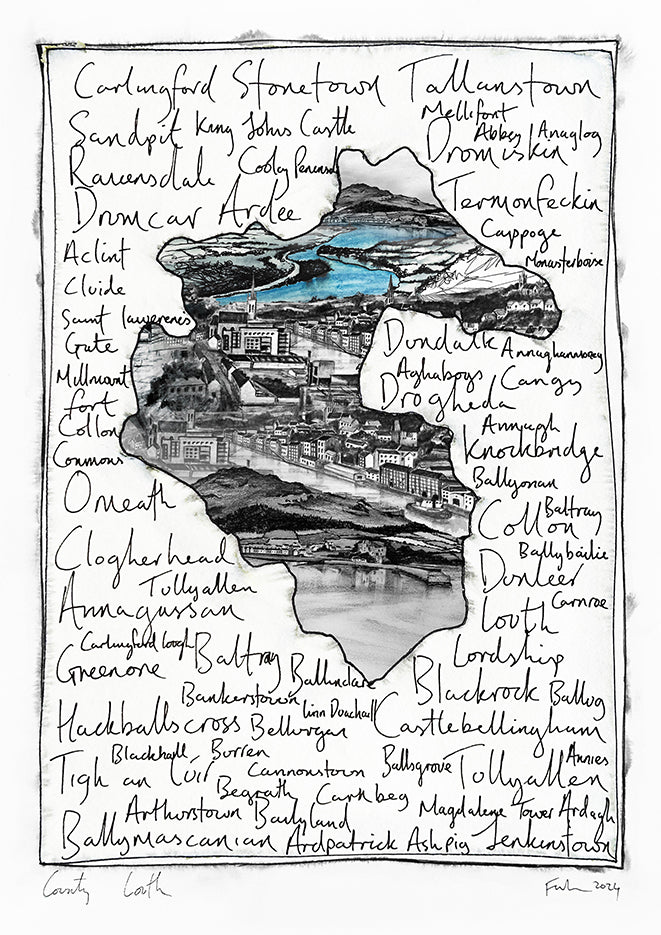 Carlingford Stonetown Tallanstown
Mellifont
Sandpit King Johns Castle Abbey Anaglog
Dromiskin
Ravensdale Cooley Peninsula
Dromcar Ardee Termonfeckin
Cappoge
Aclint Monasterboise
Cluide
Saint lawerences
Gate Dundalk
Aghaboys Cangy
Millmount Drogheda
fort Annagh
Collon Knockbridge
Commons Ballyonan
Oneath Baltray
Collon
Clogherhead Ballybailie
Dunleer
Tullyallen Carnroe
Annagassan Louth
Carlingford lough Lordship
Greenore Baltray
Blackrock Ballug
Bankerstown linn Duachaill
Hackballscross Bellurgan Castlebellingham
Blackhall Burren Annies
Tigh an Iúir Cannonstown Ballsgrove Tullyallen
Begrath Carnbeg
Arthurstown Bailyland Magdalene Tower Ardagh
Ballymascanlan Ardpatrick Ashpig Jenkinstown
County Louth
2024